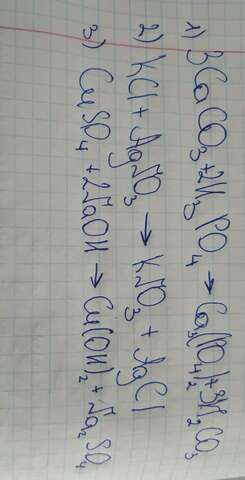 1) 3CaCO₃ + 2H₃PO₄ → Ca₃(PO₄)₂ + 3H₂CO₃
2) KCl + AgNO₃ → KNO₃ + AgCl
3) CuSO₄ + 2NaOH → Cu(OH)₂ + Na₂SO₄